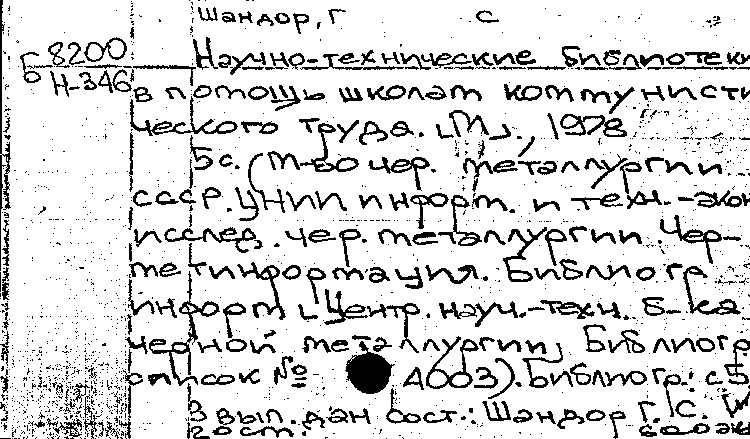 Шандор, Г С
Б 8200
Н-346
Научно-технические библиотеки
в помощь школам коммунисти
ческого труда. [М]., 1978
5с. (М-во чер. металлургии
СССР. ЦНИИ информ. и техн.-экон
исслед. чер. металлургии. Чер-
метинформация. Библиогр
информ [Центр. науч.-техн. б-ка
черной металлургии] Библиогр
список № А003). Библиогр.: с 5
З вып. дан сост.: Шандор Г. С.